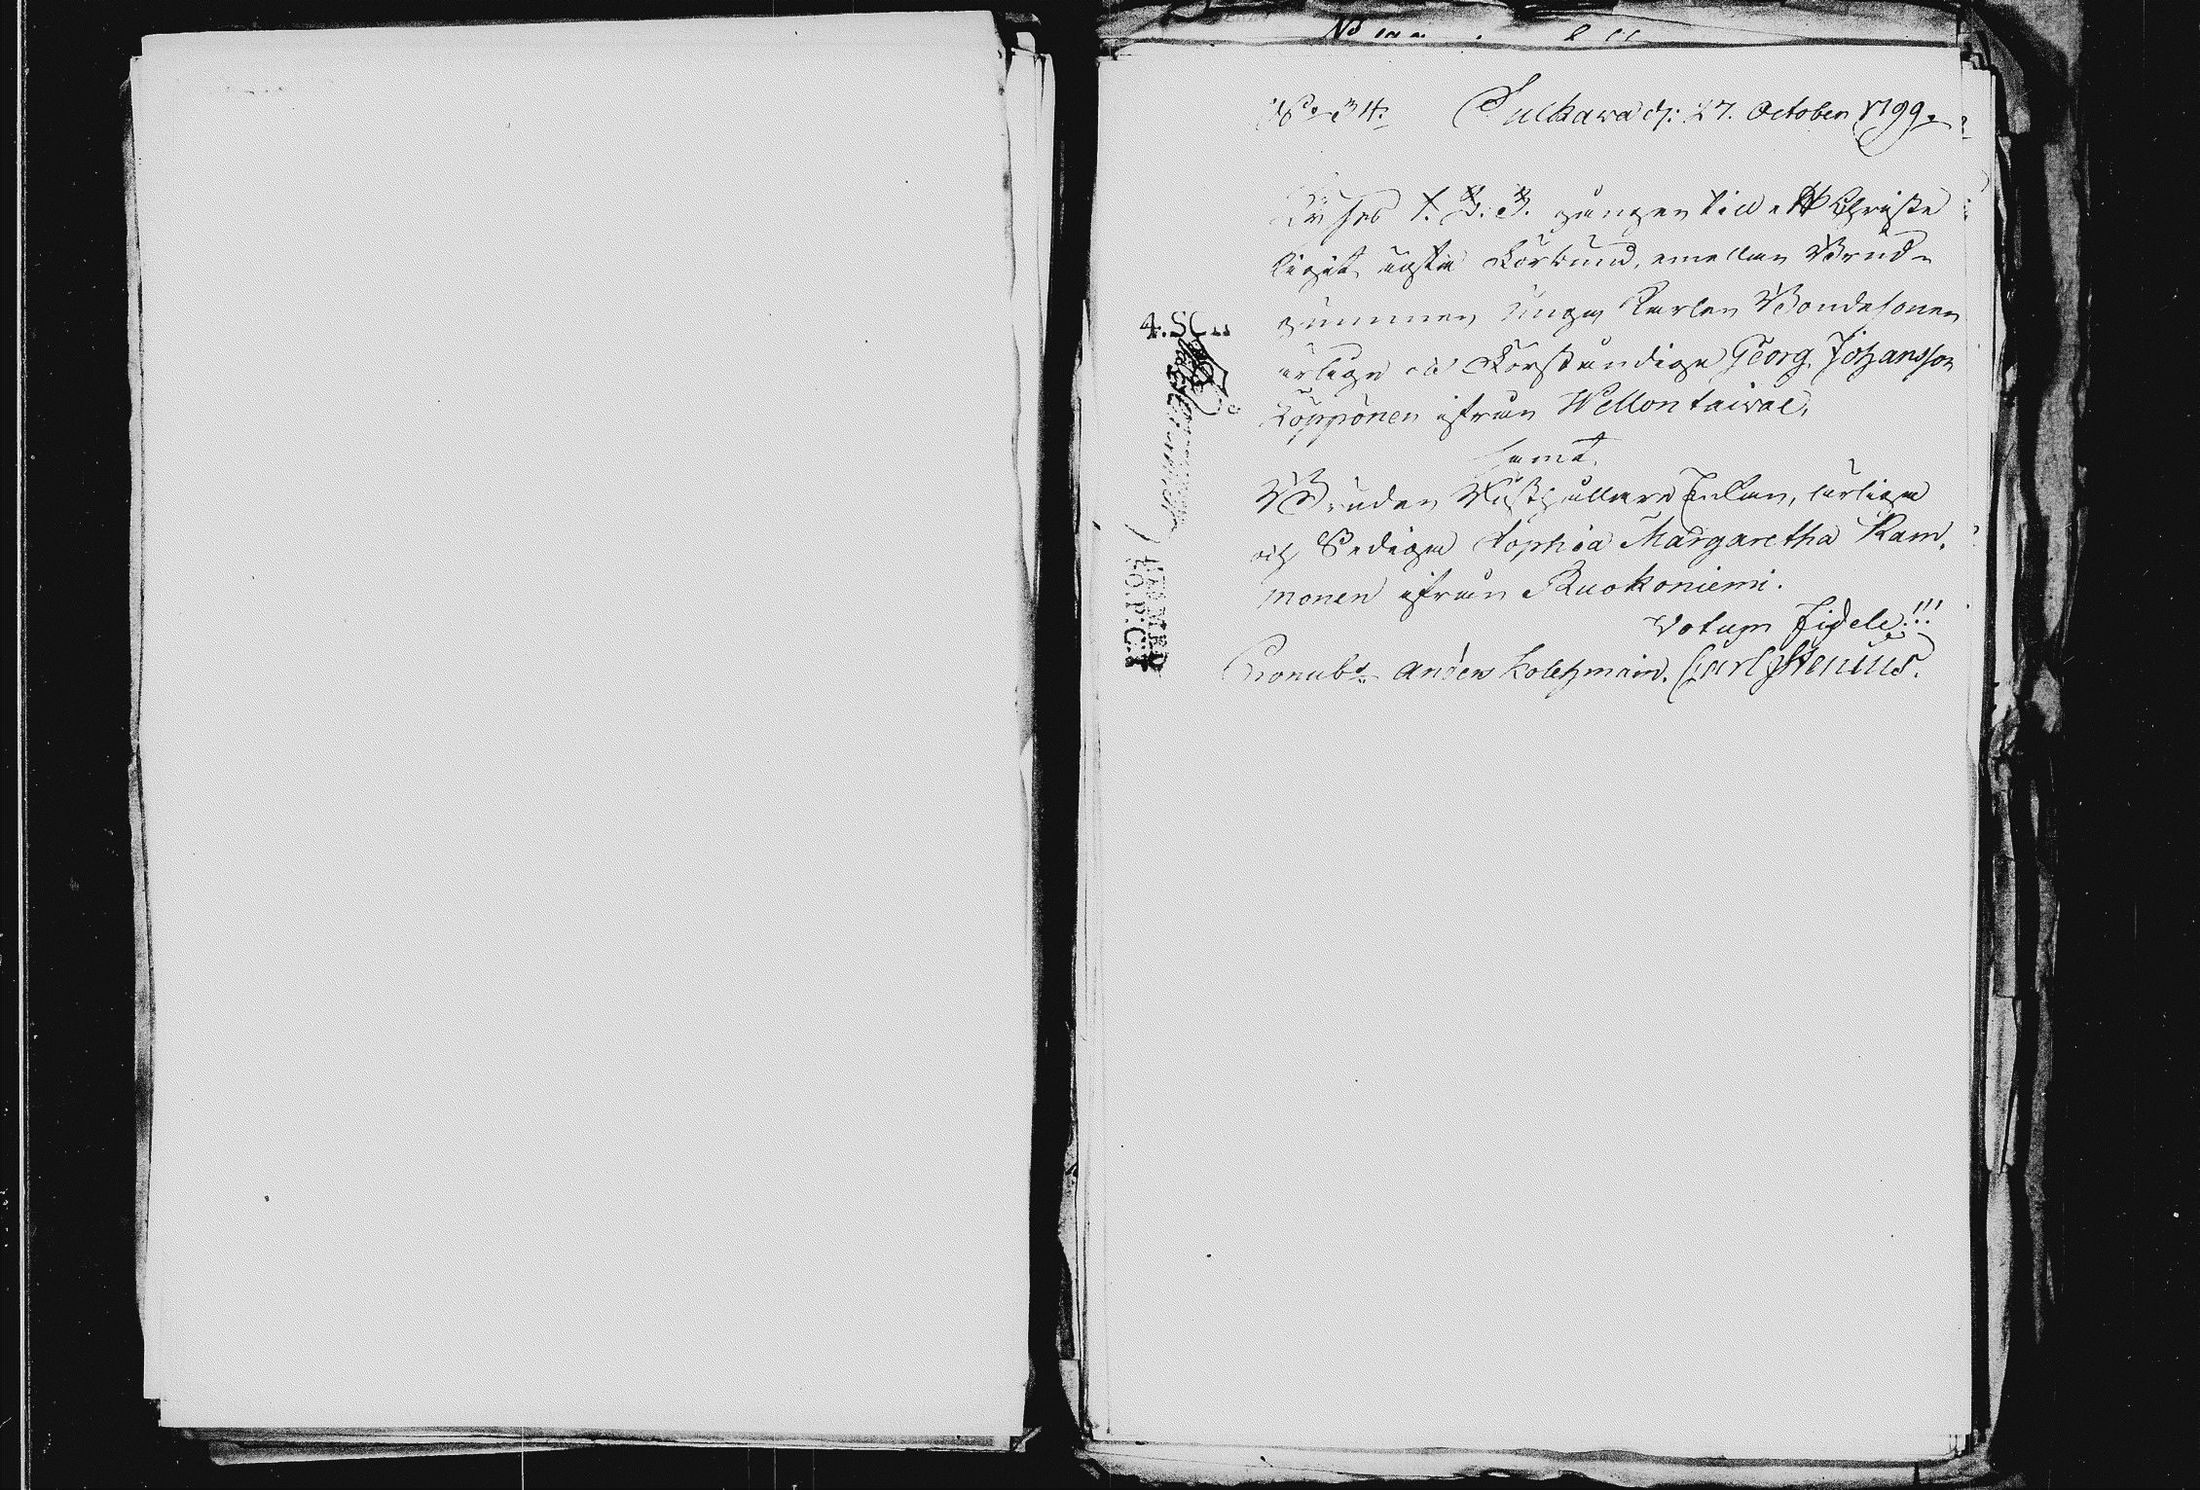 No 34. Sulkava d: 27. October 1799.
Lyses 1. 2. 3. gången till et Christe
ligit ägta Förbund, emellan Brud-
gummen Unga Karlen Bondesonen
ärlige och Förståndige Georg Johansson
Köppönen ifrån Wellontaival,
samt
Bruden Rusthållare Enkan, ärliga
och Sediga Sophia Margaretha Ram,
monen ifrån Ruokoniemi.
Votum fidele!!!
Pronubs Anders Kolehmain. Carl Stenius.
4.SC